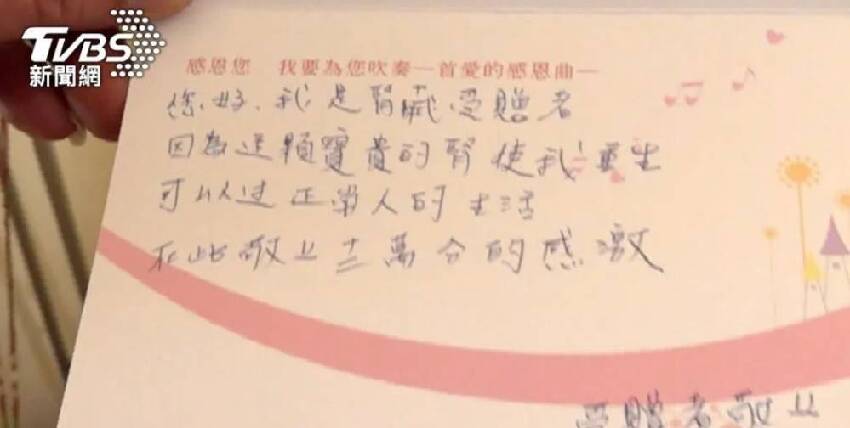 TVBS
新聞網
感恩您 我要為您吹奏一首愛的感恩曲—
您好，我是腎臟受贈者
因為這顆寶貴的腎使我重生
可以过正常人的生活
在此敬上十二萬分的感激
受贈者敬上